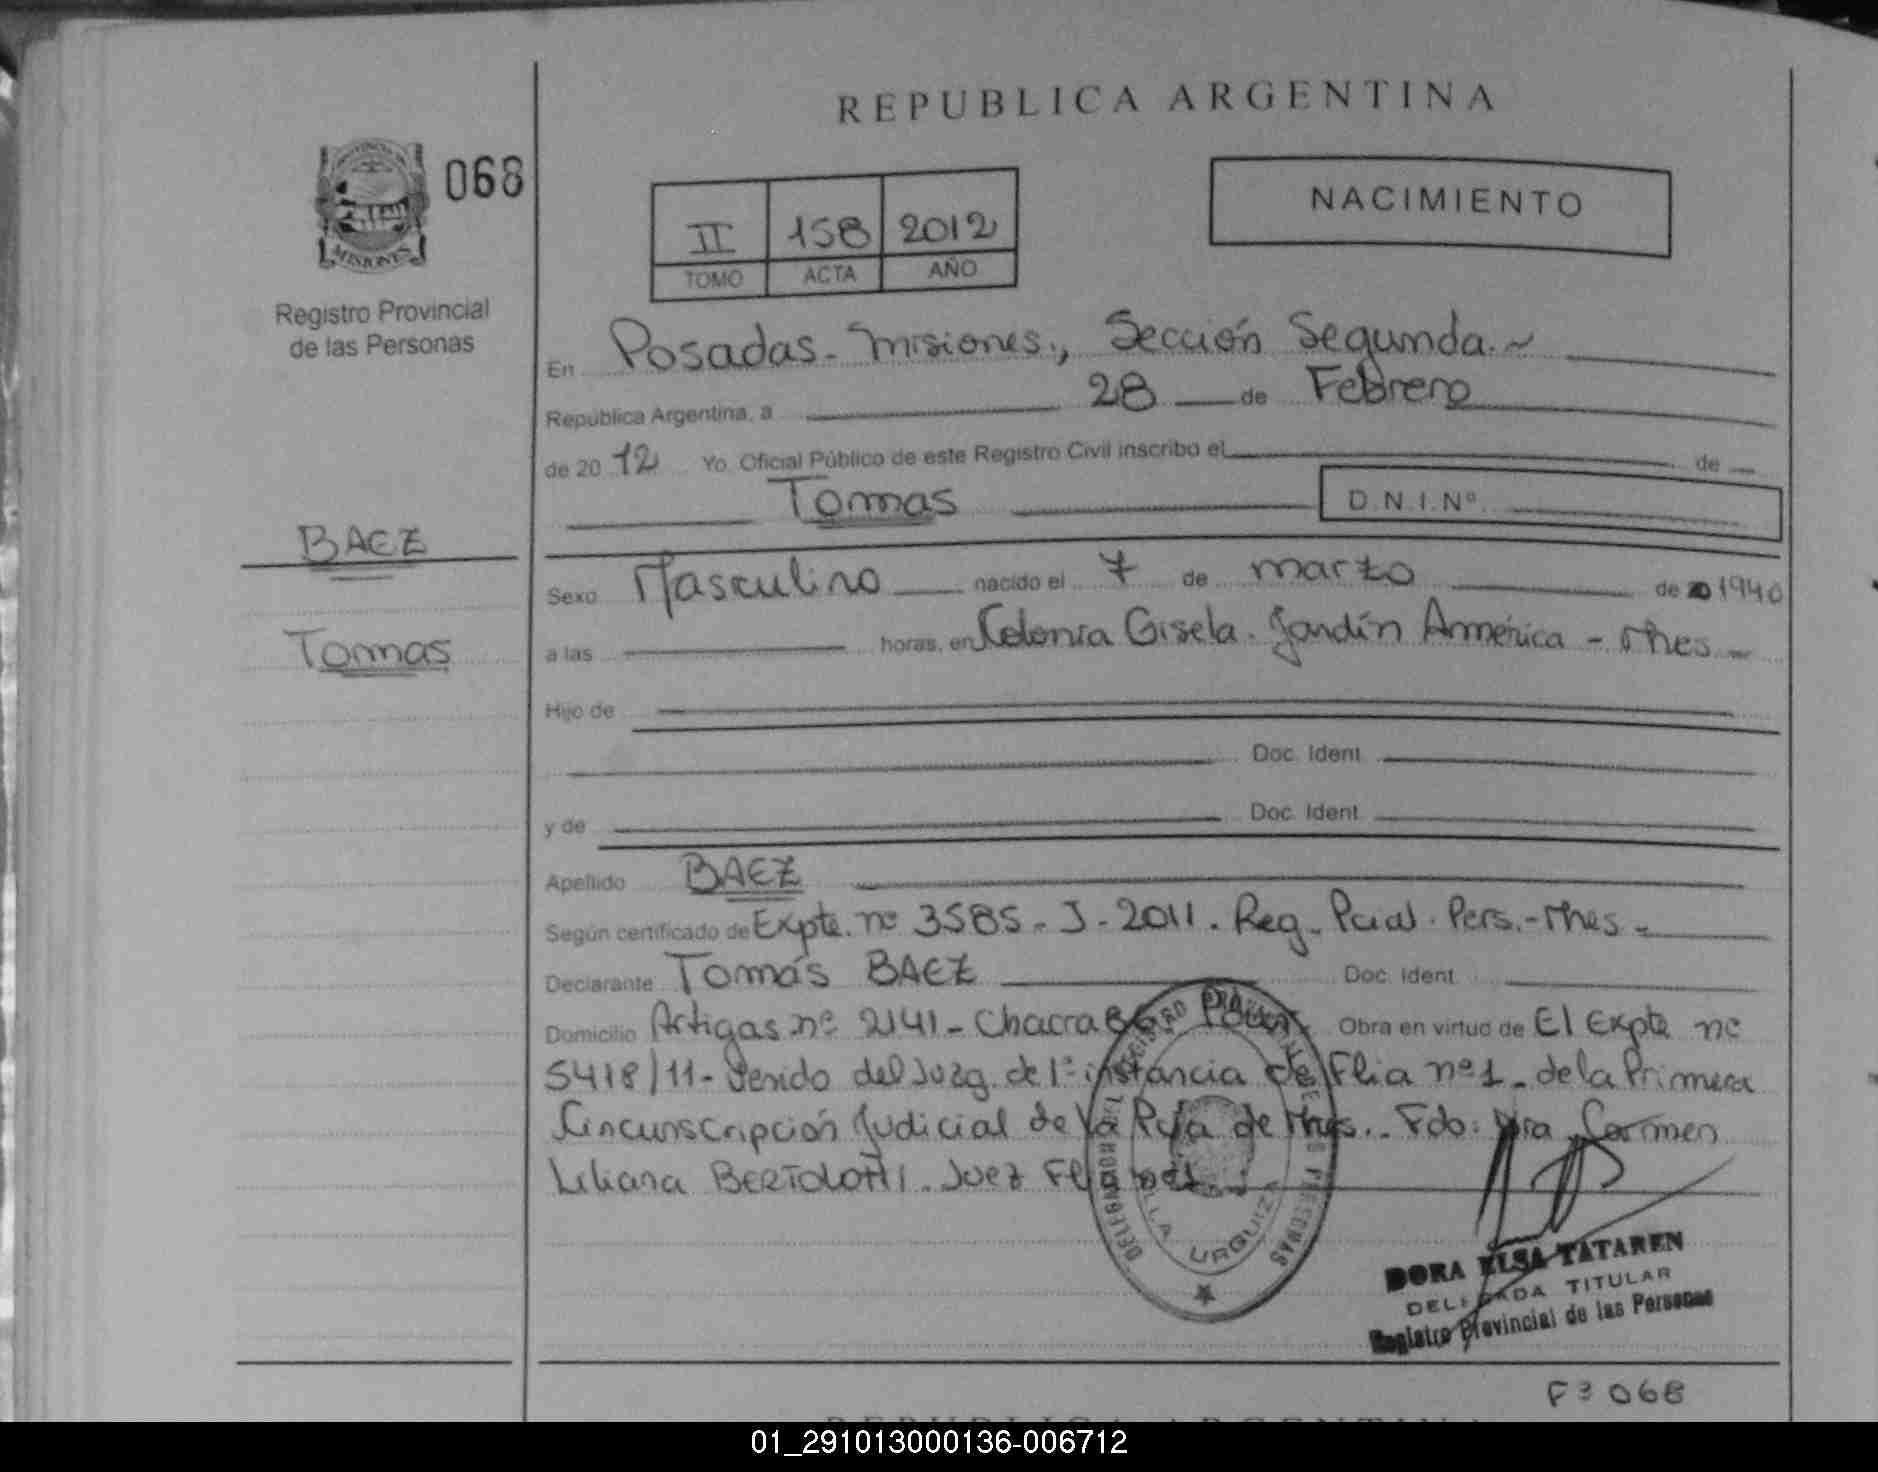 REPUBLICA ARGENTINA
PROVINCIA DE
MISIONES
068
Registro Provincial
de las Personas
II 158 2012
TOMO ACTA AÑO
NACIMIENTO
En Posadas - Misiones., Sección Segunda.~
República Argentina, a 28 de Febrero
de 20 12 Yo. Oficial Público de este Registro Civil inscribo el de
Tomas D.N.I.Nº
BAEZ
Sexo Masculino nacido el 7 de marzo de 1940
Tomas
a las horas, en Colonia Gisela. Jardín América - Mnes
Hijo de
Doc. Ident.
y de Doc. Ident.
Apellido BAEZ
Según certificado de Expte. nº 3585 - J - 2011. Reg. Pcial. Pers. - Mnes -
Declarante Tomás BAEZ Doc. Ident.
Domicilio Artigas nº 2141 - Chacra Obra en virtud de El Expte nº
5418/11 - Venido del Juzg. de 1ª instancia de Flia nº1 - de la Primera
Circunscripción Judicial de la Pcia de Mnes.. Fdo: Dra Carmen
Liliana BERTOLOTTI. Juez Flia nº1
REGISTRO PROVINCIAL DE LAS PERSONAS
DELEGACION
VILLA URQUIZA
DORA ELSA TATAREN
DELEGADA TITULAR
Registro Provincial de las Personas
Fº 068
REPUBLICA ARGENTINA
01_291013000136-006712